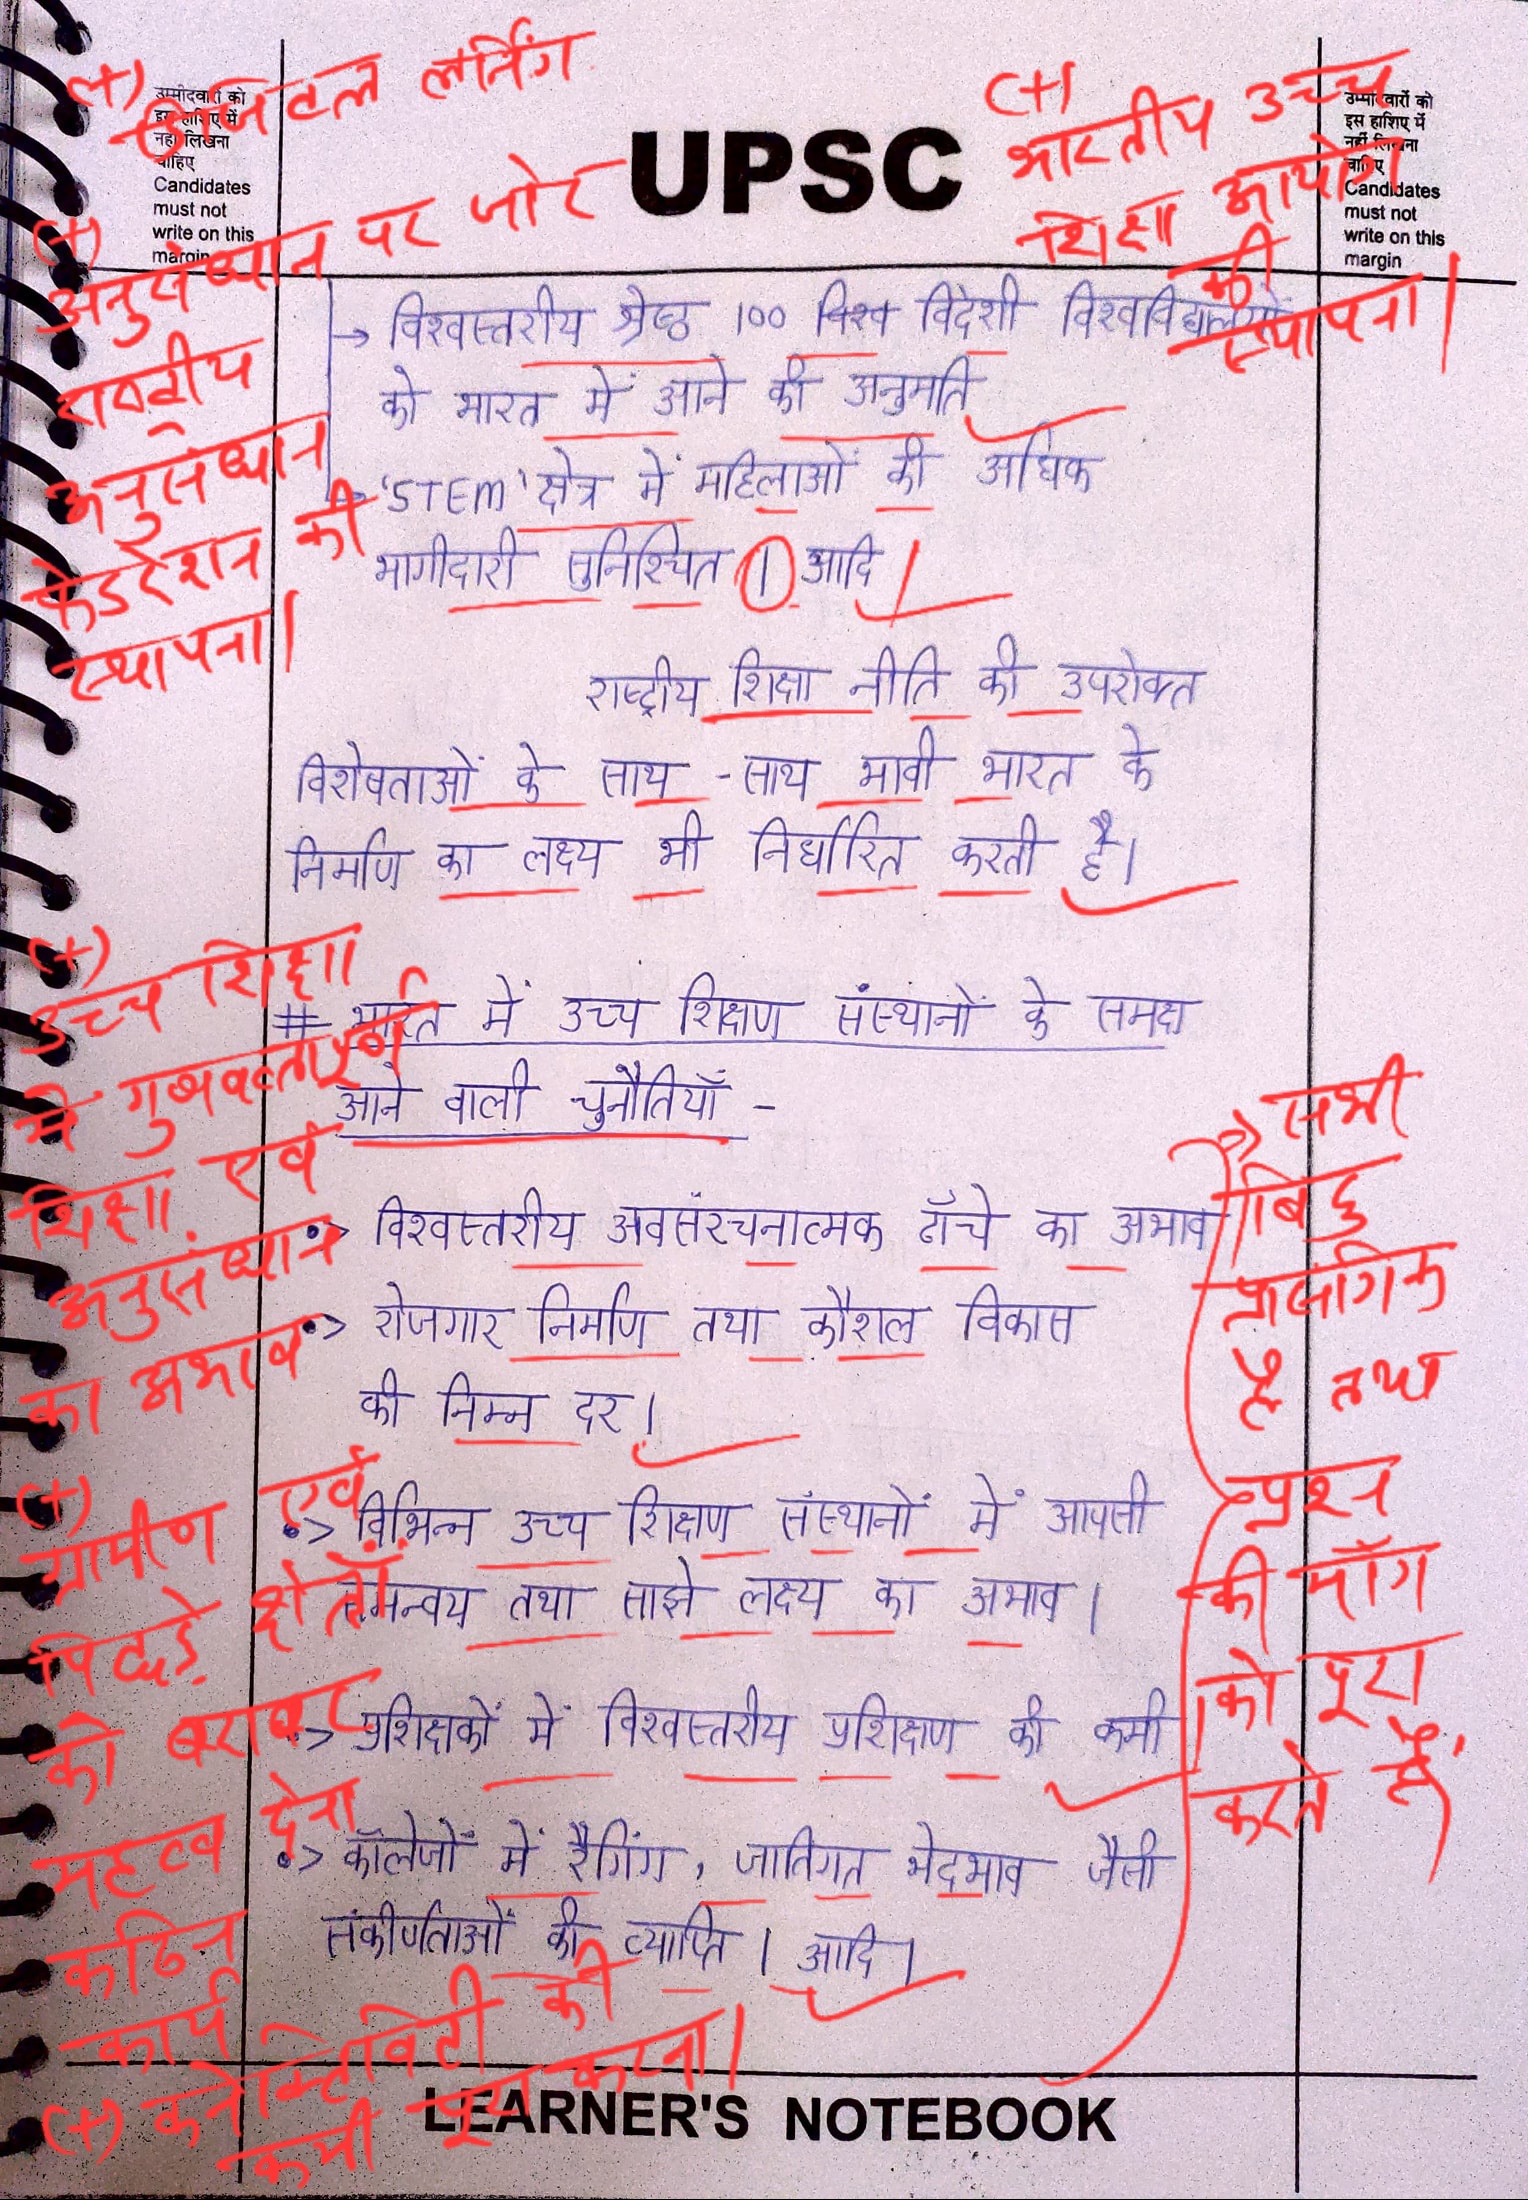 (+) डिजिटल लर्निंग
(+) अनुसंधान पर जोर
राष्ट्रीय
अनुसंधान
फेडरेशन की
स्थापना।
(+) भारतीय उच्च
शिक्षा आयोग
की
स्थापना।
उम्मीदवारों को
इस हाशिए में
नहीं लिखना
चाहिए
Candidates
must not
write on this
margin
UPSC
उम्मीदवारों को
इस हाशिए में
नहीं लिखना
चाहिए
Candidates
must not
write on this
margin
→ विश्वस्तरीय श्रेष्ठ 100 विश्व विदेशी विश्वविद्यालयों
को भारत में आने की अनुमति
→ 'STEM' क्षेत्र में महिलाओं की अधिक
भागीदारी सुनिश्चित । आदि।
राष्ट्रीय शिक्षा नीति की उपरोक्त
विशेषताओं के साथ - साथ भावी भारत के
निर्माण का लक्ष्य भी निर्धारित करती है।
# भारत में उच्च शिक्षण संस्थानों के समक्ष
आने वाली चुनौतियाँ -
•> विश्वस्तरीय अवसंरचनात्मक ढाँचे का अभाव
•> रोजगार निर्माण तथा कौशल विकास
की निम्न दर।
•> विभिन्न उच्च शिक्षण संस्थानों में आपसी
समन्वय तथा साझे लक्ष्य का अभाव।
•> प्रशिक्षकों में विश्वस्तरीय प्रशिक्षण की कमी
•> कॉलेजों में रैगिंग, जातिगत भेदभाव जैसी
संकीर्णताओं की व्याप्ति । आदि।
(+)
उच्च शिक्षा
में गुणवत्तापूर्ण
शिक्षा एवं
अनुसंधान
का अभाव
(+)
ग्रामीण एवं
पिछड़े क्षेत्रों
को बराबर
महत्व देना
कठिन
कार्य
(+) कनेक्टिविटी की
कमी पूरा करना।
सभी
बिंदु
प्रासंगिक
है तथा
प्रश्न
की माँग
को पूरा
करते हैं।
LEARNER'S NOTEBOOK